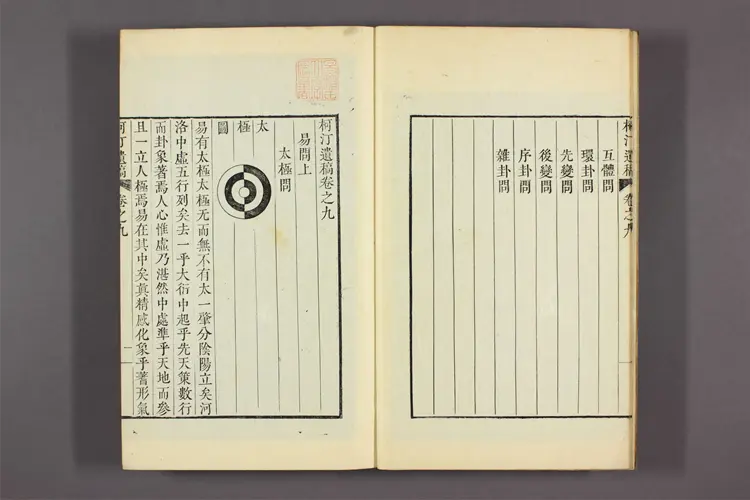 柯汀遺稿 卷之九
互體問
環卦問
先變問
後變問
序卦問
雜卦問
柯汀遺稿卷之九
易問上
太極問
太極圖
易有太極太極无而無不有太一肇分陰陽立矣河
洛中虛五行列矣去一乎大衍中起乎先天策數行
而卦象著焉人心惟虛乃湛然中處準乎天地而參
且一立人極焉易在其中矣眞精感化象乎著形氣
柯汀遺稿 卷之九